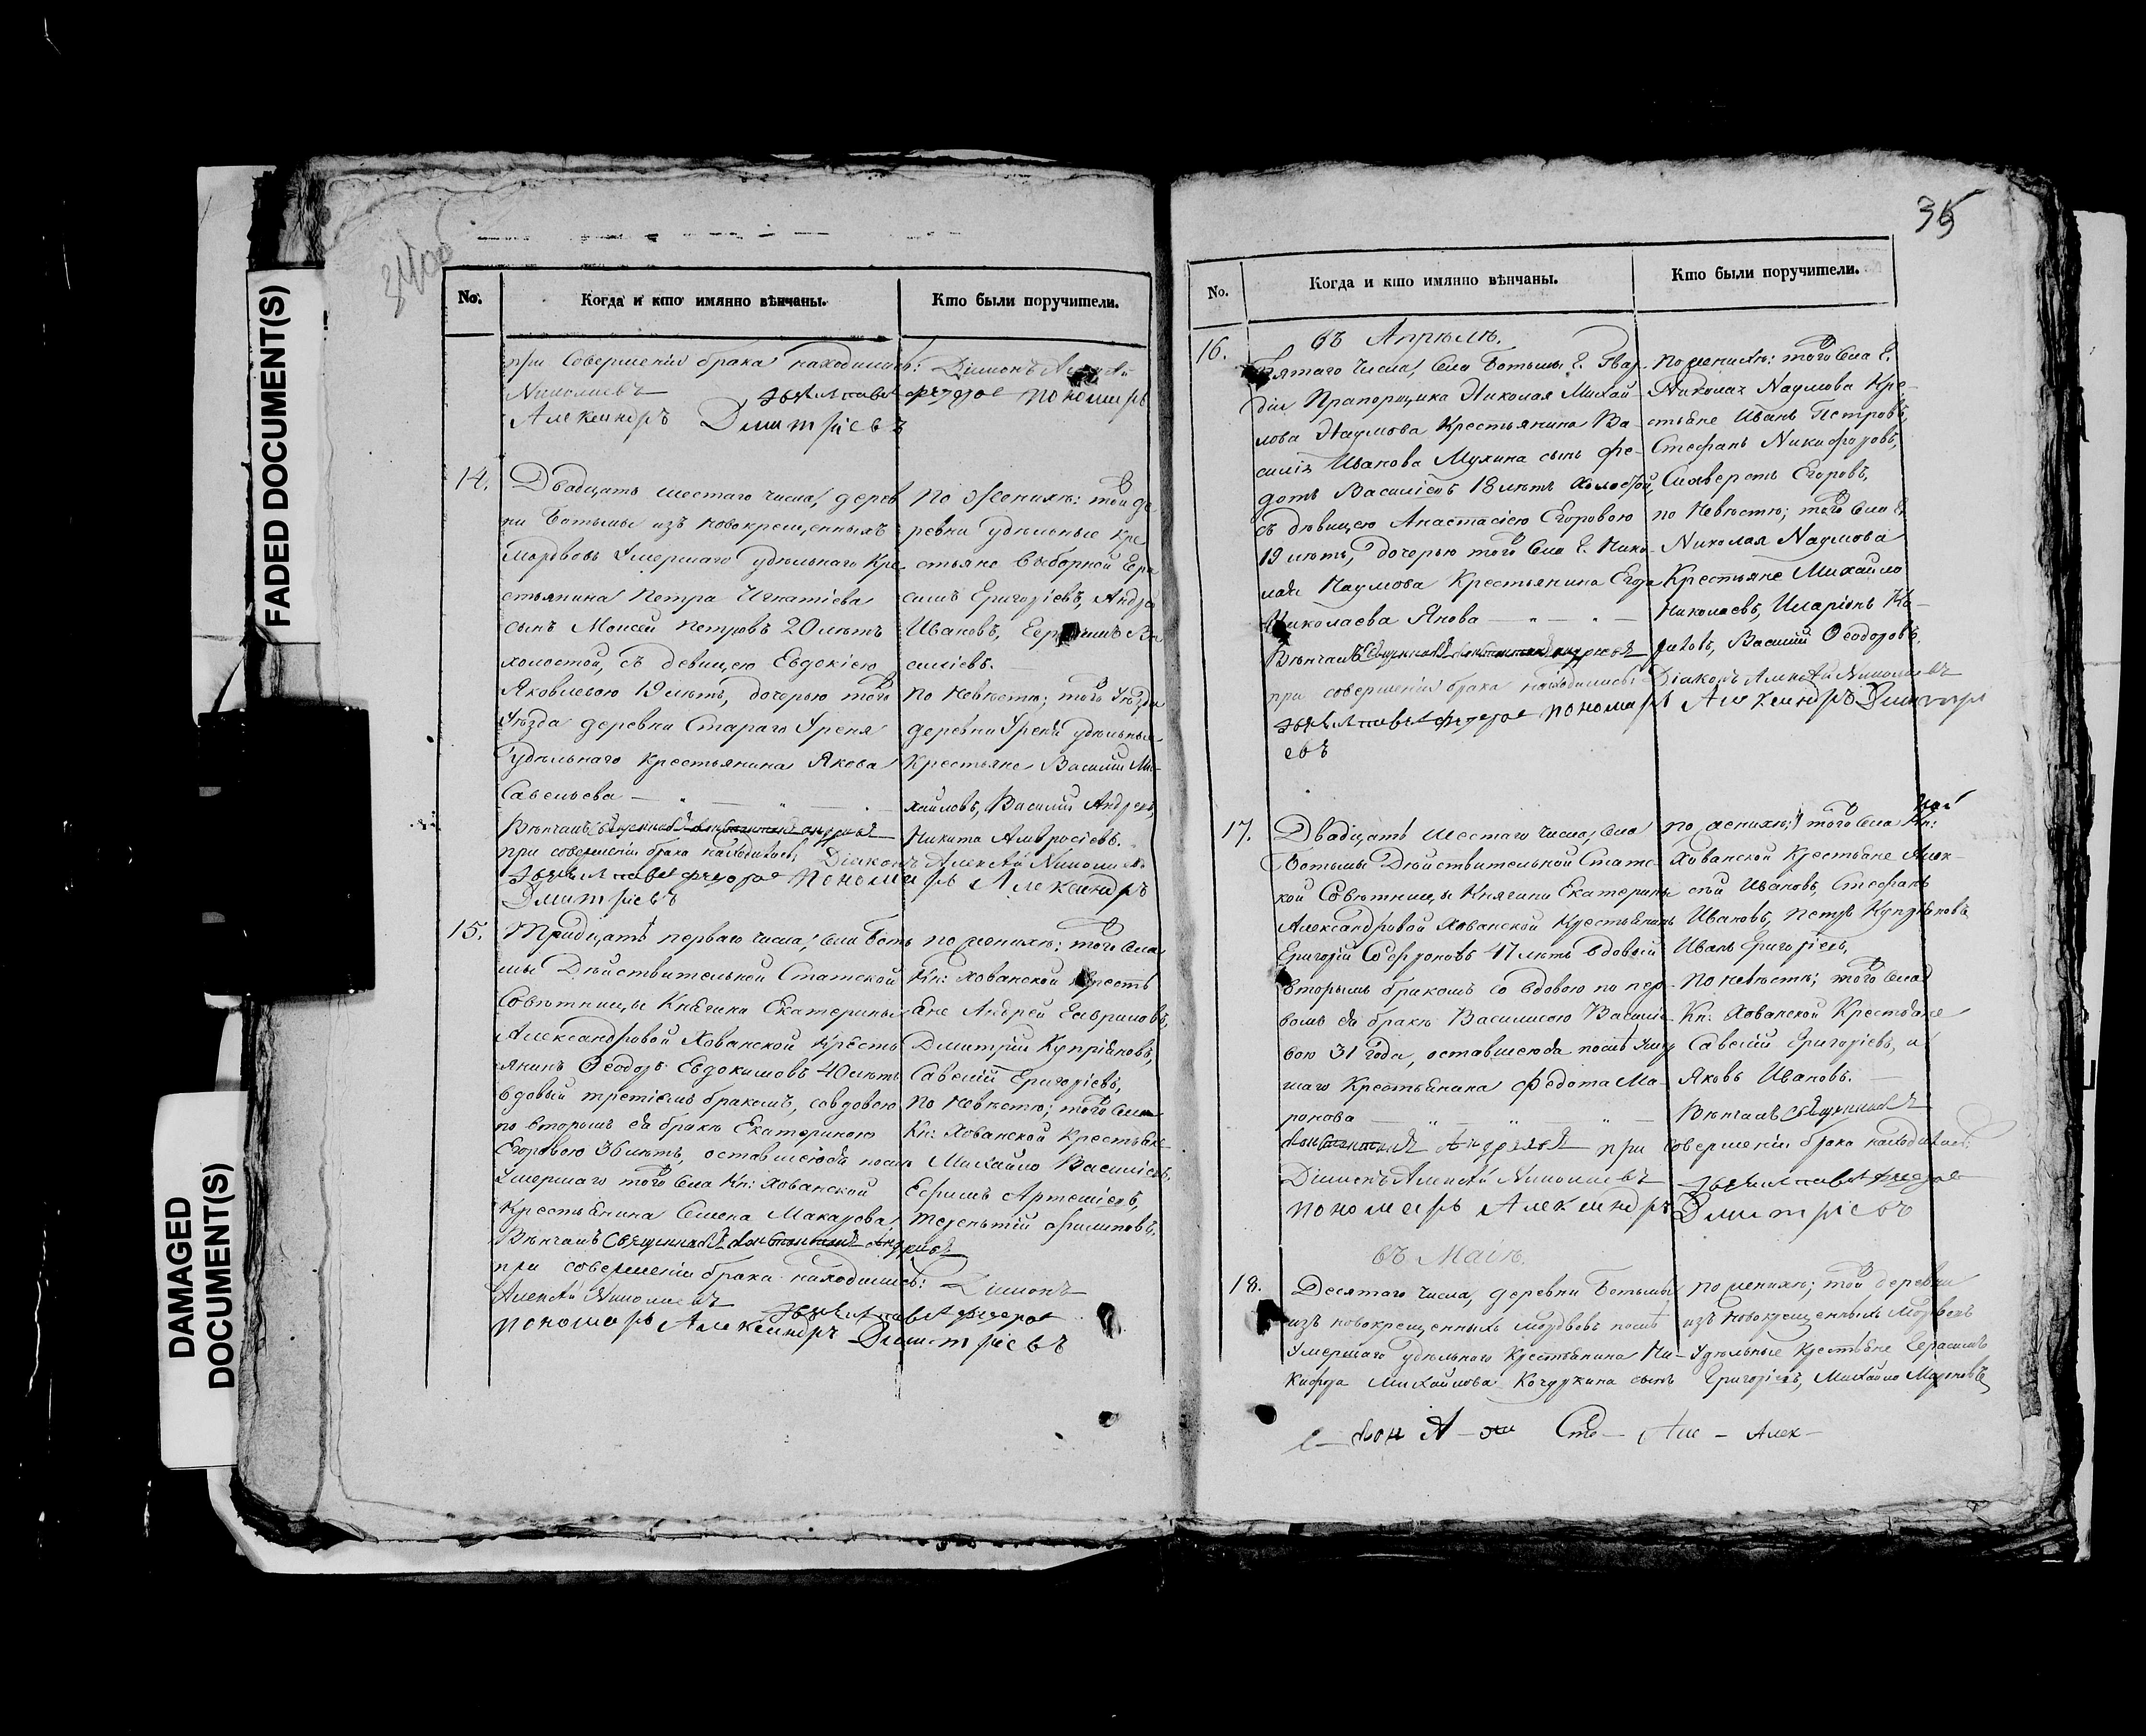 FADED DOCUMENT(S)
DAMAGED
DOCUMENT(S)
No.
Когда и кто имянно вѣнчаны.
Кто были поручители.
при совершеніи брака находились: Діаконъ Алексѣй
Николаевъ пономарь
Александръ Дмитріевъ
14.
Двадцать шестаго числа, дерев
ни Ботьмы изъ новокрещенныхъ
мордвовъ умершаго удѣльнаго кре
стьянина Петра Игнатіева
сынъ Моисей Петровъ 20 лѣтъ
холостой, съ девицею Евдокіею
Яковлевою 19 лѣтъ, дочерью того
уѣзда деревни Стараго Уреня
удѣльнаго крестьянина Якова
Савельева
Вѣнчалъ Священникъ
при совершеніи брака находились; Діаконъ Алексѣй Николаев
пономарь Александръ
Дмитріевъ
по Женихѣ: той де
ревни удѣльные кре
стьяне выборной Гера
симъ Григоріевъ, Андре
Ивановъ, Ва
силіевъ.
по Невѣстѣ; того уѣзда
деревни Уреня удѣльные
Крестьяне Василій Ми-
хайловъ, Василій Андреев,
Никита Амвросіевъ.
15.
Тридцать перваго числа, села Боть
мы Дѣйствительной Статской
Совѣтницы Княгини Екатерины
Александровой Хованской кресть
янинъ Ѳеодоръ Евдокимовъ 40 лѣтъ
вдовый третіимъ бракомъ, со вдовою
по второмъ ея бракѣ Екатериною
Егоровою 36 лѣтъ, оставшеюся послѣ
Умершаго того села Кн: Хованской
Крестьянина Семена Макарова,
Вѣнчалъ Священникъ
при совершеніи брака находились: Діаконъ
Алексѣй Николаевъ
пономарь Александръ Дмитріевъ
по женихѣ: того села
Кн: Хованской кресть
яне Андрей Гавриловъ,
Дмитрій Купріяновъ,
Савелій Григоріевъ,
по Невѣстѣ; того села
Кн: Хованской Крестьяне
Михайло Василіевъ,
Ефимъ Артеміевъ,
Терентій Филиповъ.
35
No.
Когда и кто имянно вѣнчаны.
Кто были поручители.
въ Апрѣлѣ.
16.
Пятаго числа, села Ботьмы Г. Гвар-
діи Прапорщика Николая Михай-
лова Наумова Крестьянина Ва-
силія Иванова Мухина сынъ Фе-
дотъ Василіевъ 18 лѣтъ холостой,
съ дѣвицею Анастасіею Егоровою
19 лѣтъ, дочерью того села Г. Нико-
лая Наумова Крестьянина Егора
Николаева Янова
Вѣнчалъ Священникъ
при совершеніи брака находились: Діаконъ Алексѣй Николаевъ
пономарь Александръ Дмитрі
евъ
по женихѣ: того села Г.
Николая Наумова Кре-
стьяне Иванъ Петровъ,
Стефанъ Никифоровъ,
Силверстъ Егоровъ,
по Невѣстѣ; того села Г.
Николая Наумова
Крестьяне Михайло
Николаевъ, Иларіонъ
Василій Ѳеодоровъ.
17.
Двадцать шестаго числа, села
Ботьмы Дѣйствительной Статс-
кой Совѣтницы Княгини Екатерины
Александровой Хованской Крестьянинъ
Григорій Софроновъ 47 лѣтъ вдовый
вторымъ бракомъ со вдовою по пер-
вомъ ея бракѣ Василисою Василіе-
вою 31 года, оставшеюся послѣ умер
шаго Крестьянина Федота Ма-
ронова
при совершеніи брака находились:
Діаконъ Алексѣй Николаевъ
пономарь Александръ Дмитріевъ
по женихѣ; того села Кн:
Хованской Крестьяне Алек-
сѣй Ивановъ, Стефанъ
Ивановъ, Петръ Купріяновъ,
Иванъ Григоріевъ,
по невѣстѣ; того села
Кн: Хованской Крестьяне
Савелій Григоріевъ, и
Яковъ Ивановъ.
Вѣнчалъ Священникъ
въ Маіѣ.
18.
Десятаго числа, деревни Ботьмы
изъ новокрещенныхъ мордвовъ послѣ
Умершаго удѣльнаго Крестьянина Ни-
кифора Михайлова Кочурина сынъ
по женихѣ; той деревни
изъ новокрещенныхъ мордвовъ
Удѣльные Крестьяне Герасимъ
Григоріевъ, Михайло Марковъ,